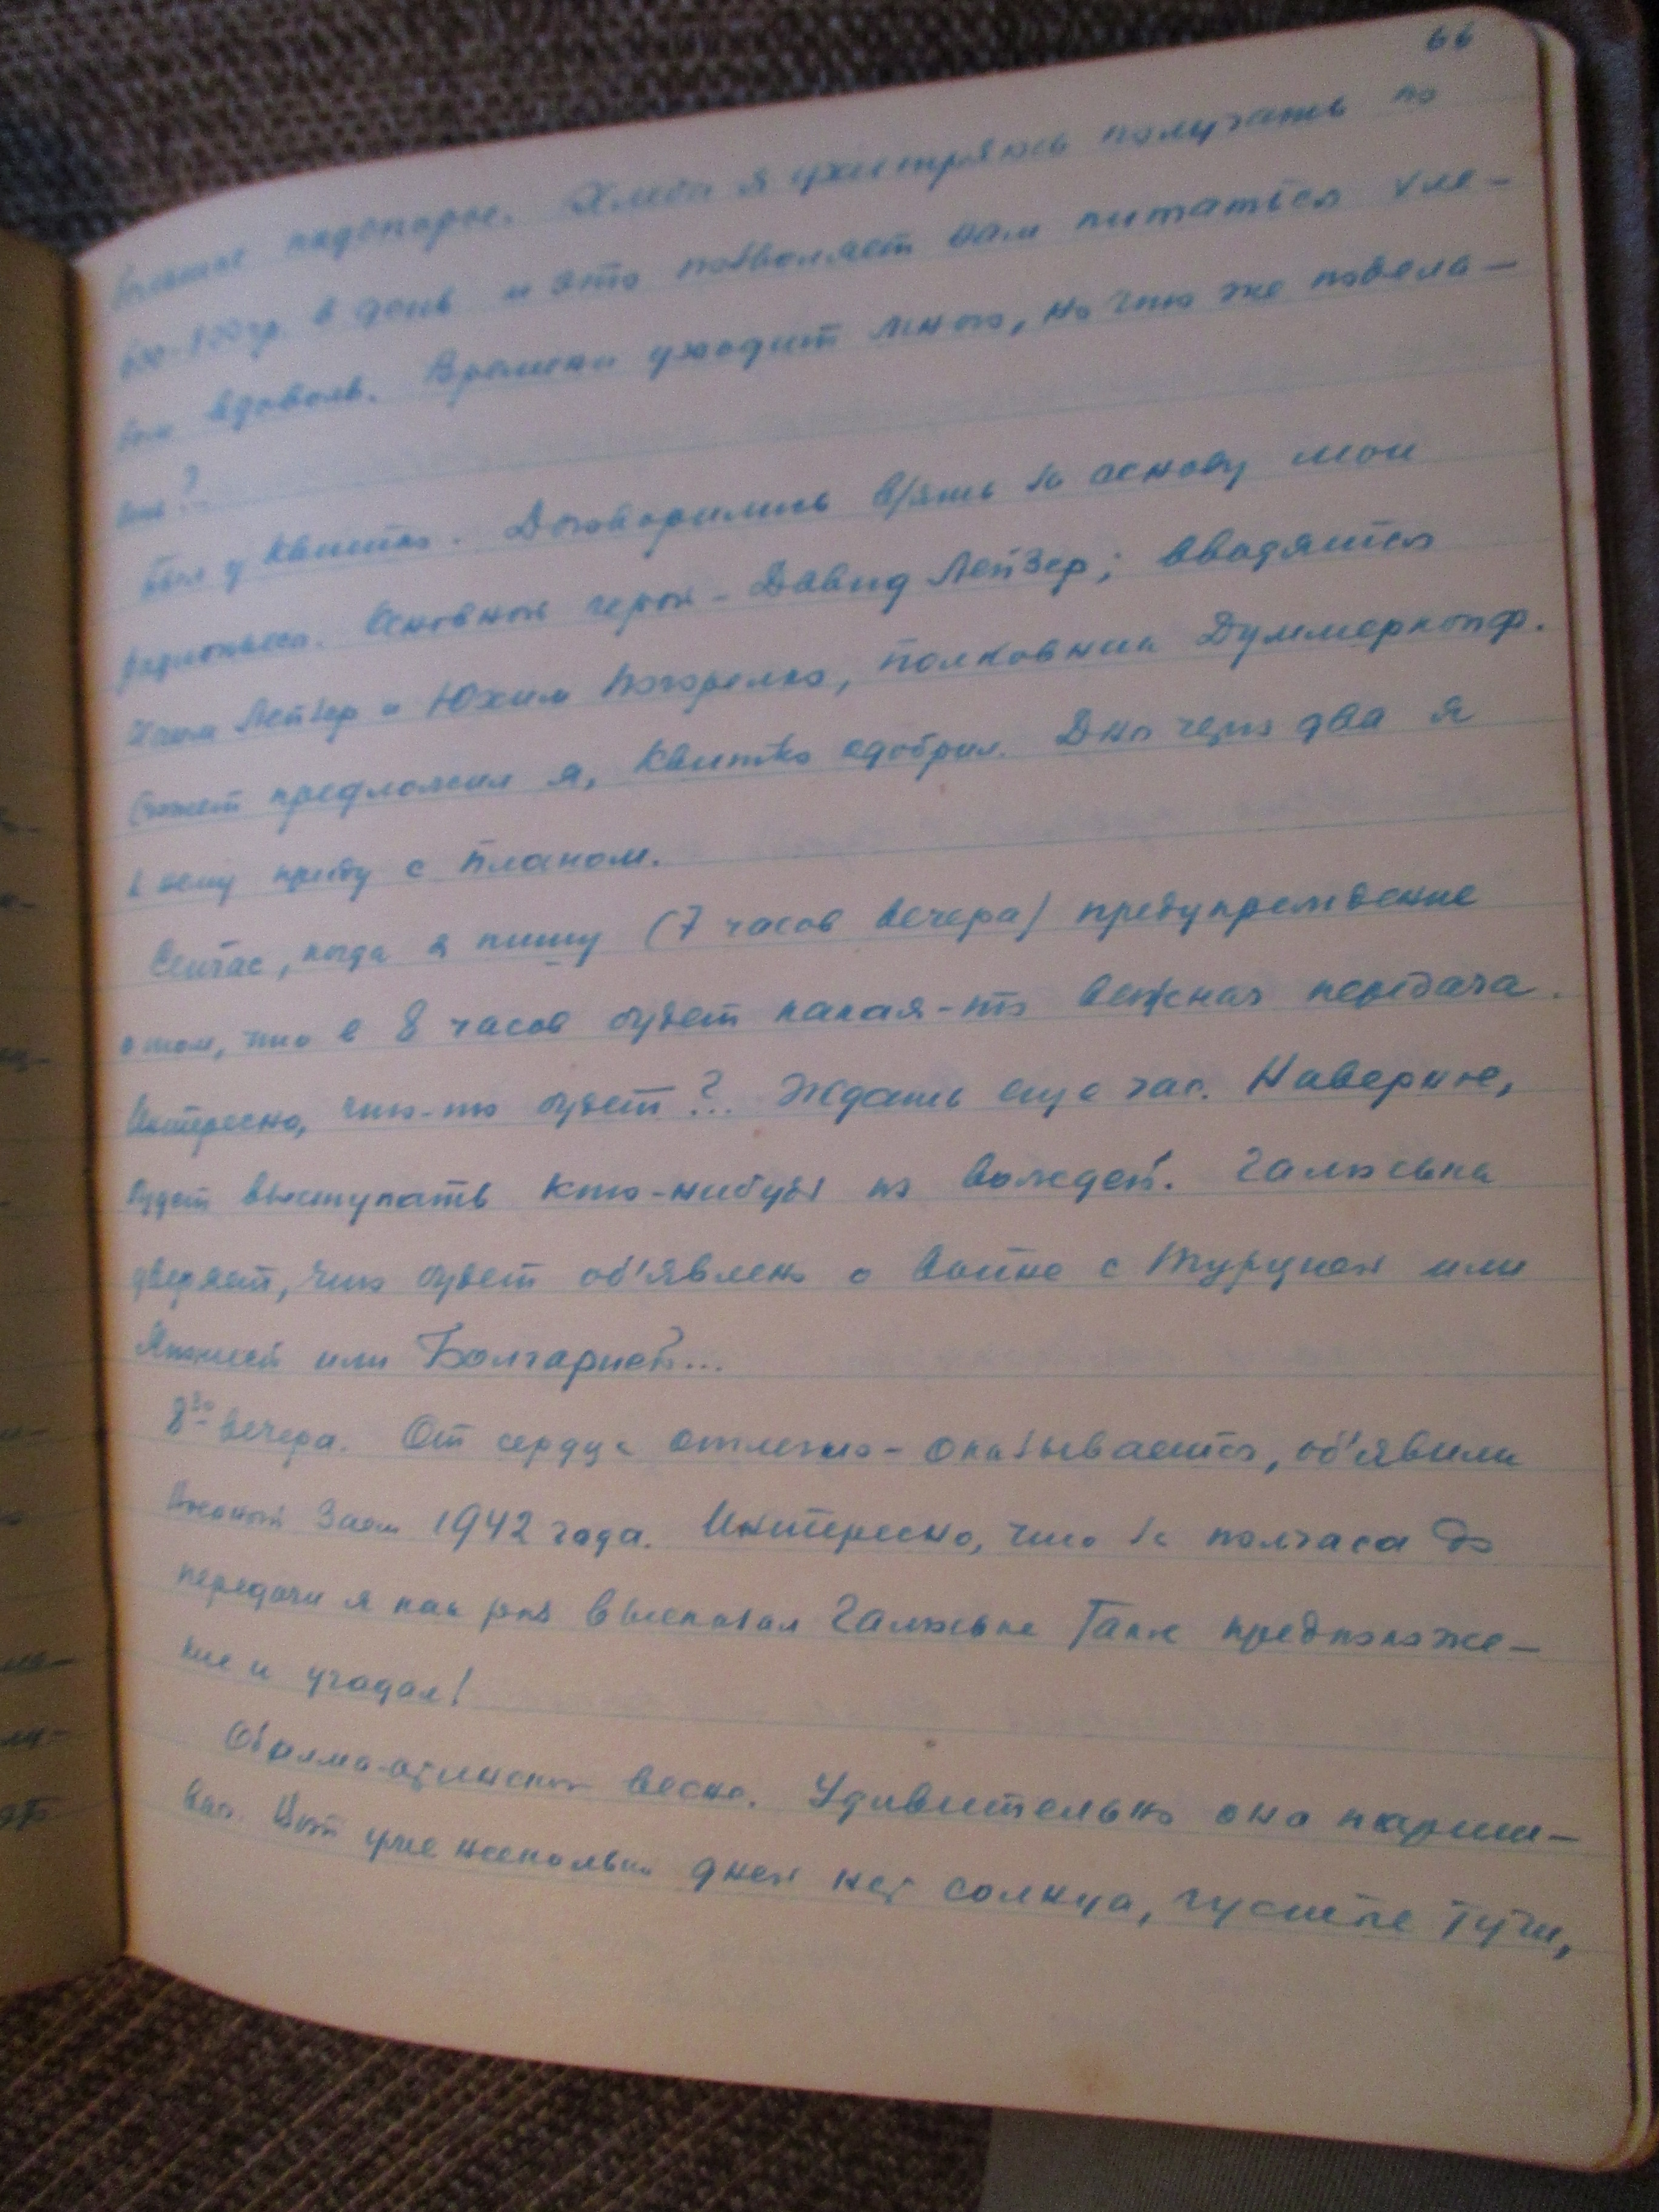 66
большое подспорье. Хлеба я ухитряюсь получать по
600-800 гр. в день и это позволяет нам питаться хле-
бом вдоволь. Времени уходит много, но что же подела-
ешь?
Был у Квитко. Договорились взять за основу мою
радиопьесу. Основной герой - Давид Лейзер; вводятся
Лейзер и Юхим Погорелко, полковник Думмеркопф.
Сюжет предложил я, Квитко одобрил. Дня через два я
к нему приду с планом.
Сейчас, когда я пишу (7 часов вечера) предупреждение
о том, что в 8 часов будет какая-то важная передача.
Интересно, что-то будет?.. Ждать еще час. Наверное,
будет выступать кто-нибудь из вождей. Галюська
уверяет, что будет об'явлено о войне с Турцией или
Японией или Болгарией...
8³⁰ вечера. От сердца отлегло - оказывается, об'явили
Военный Заем 1942 года. Интересно, что за полчаса до
передачи я как раз высказал Галюське такое предположе-
ние и угадал!
Об алма-атинской весне. Удивительно она парши-
вая. Вот уже несколько дней нет солнца, густые тучи,